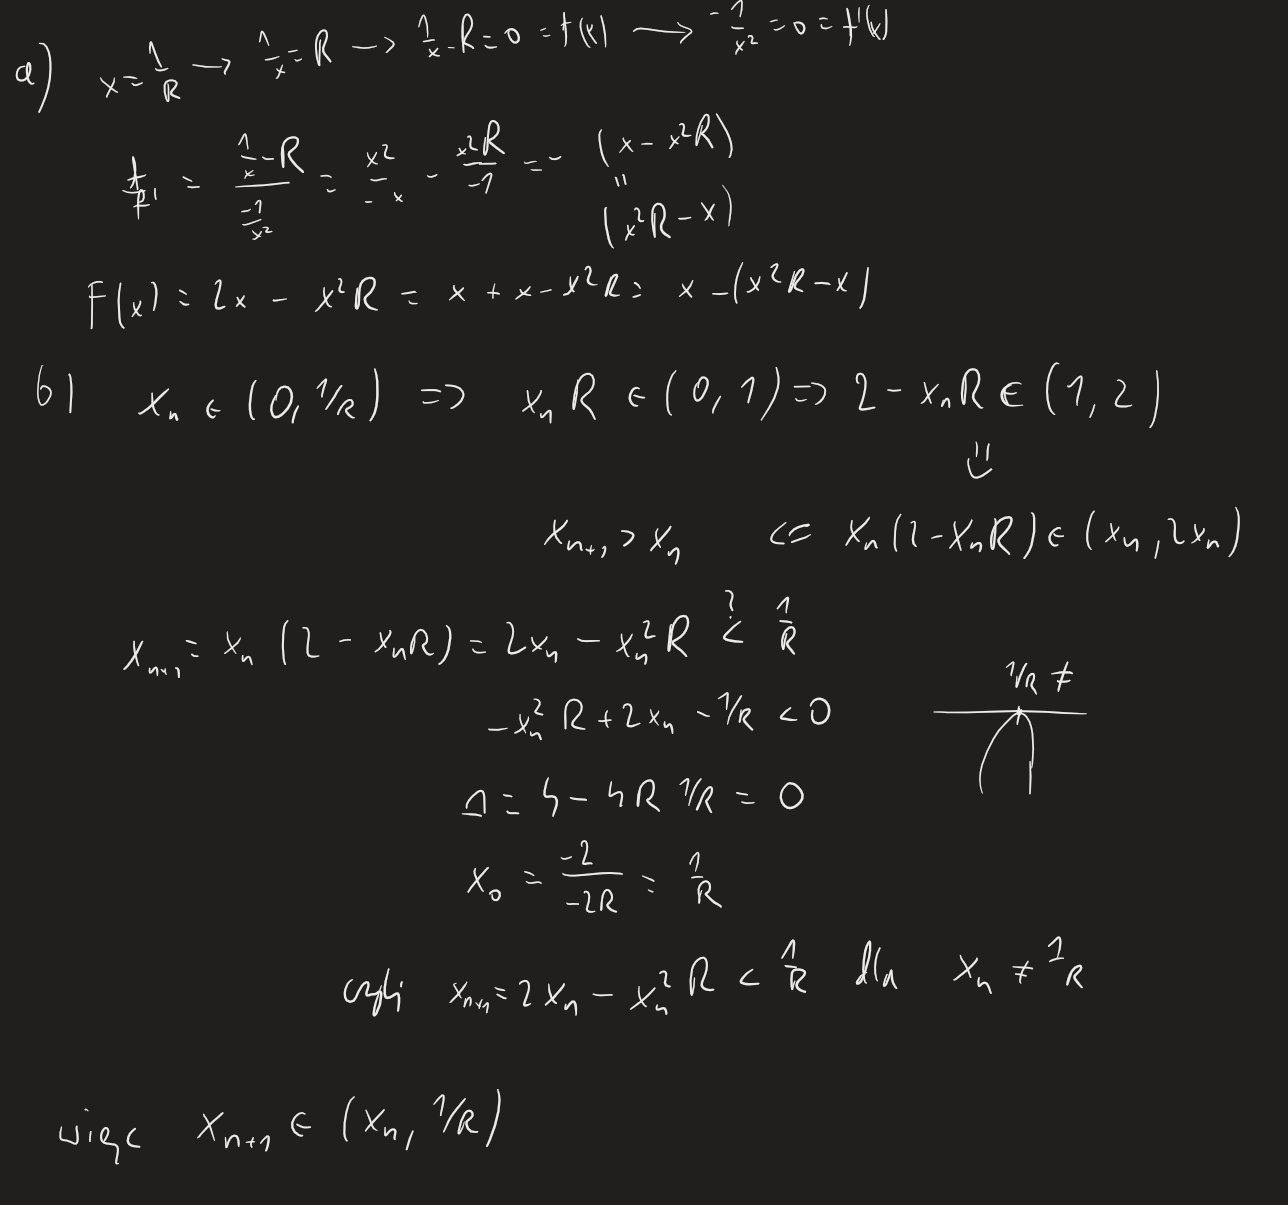 a) x = 1/R → 1/x = R → 1/x - R = 0 = f(x) → -1/x² = 0 = f'(x)
f/f' = (1/x - R)/(-1/x²) = x²/-x - x²R/-1 = - (x - x²R)
=
(x²R - x)
F(x) = 2x - x²R = x + x - x²R = x - (x²R - x)
b) xₙ ∈ (0, 1/R) => xₙR ∈ (0, 1) => 2 - xₙR ∈ (1, 2)
xₙ₊₁ > xₙ <= xₙ(2 - xₙR) ∈ (xₙ, 2xₙ)
xₙ₊₁ = xₙ (2 - xₙR) = 2xₙ - xₙ²R <? 1/R
1/R ≠
-xₙ²R + 2xₙ - 1/R < 0
Δ = 4 - 4R 1/R = 0
x₀ = -2/-2R = 1/R
czyli xₙ₊₁ = 2xₙ - xₙ²R < 1/R dla xₙ ≠ 1/R
więc xₙ₊₁ ∈ (xₙ, 1/R)